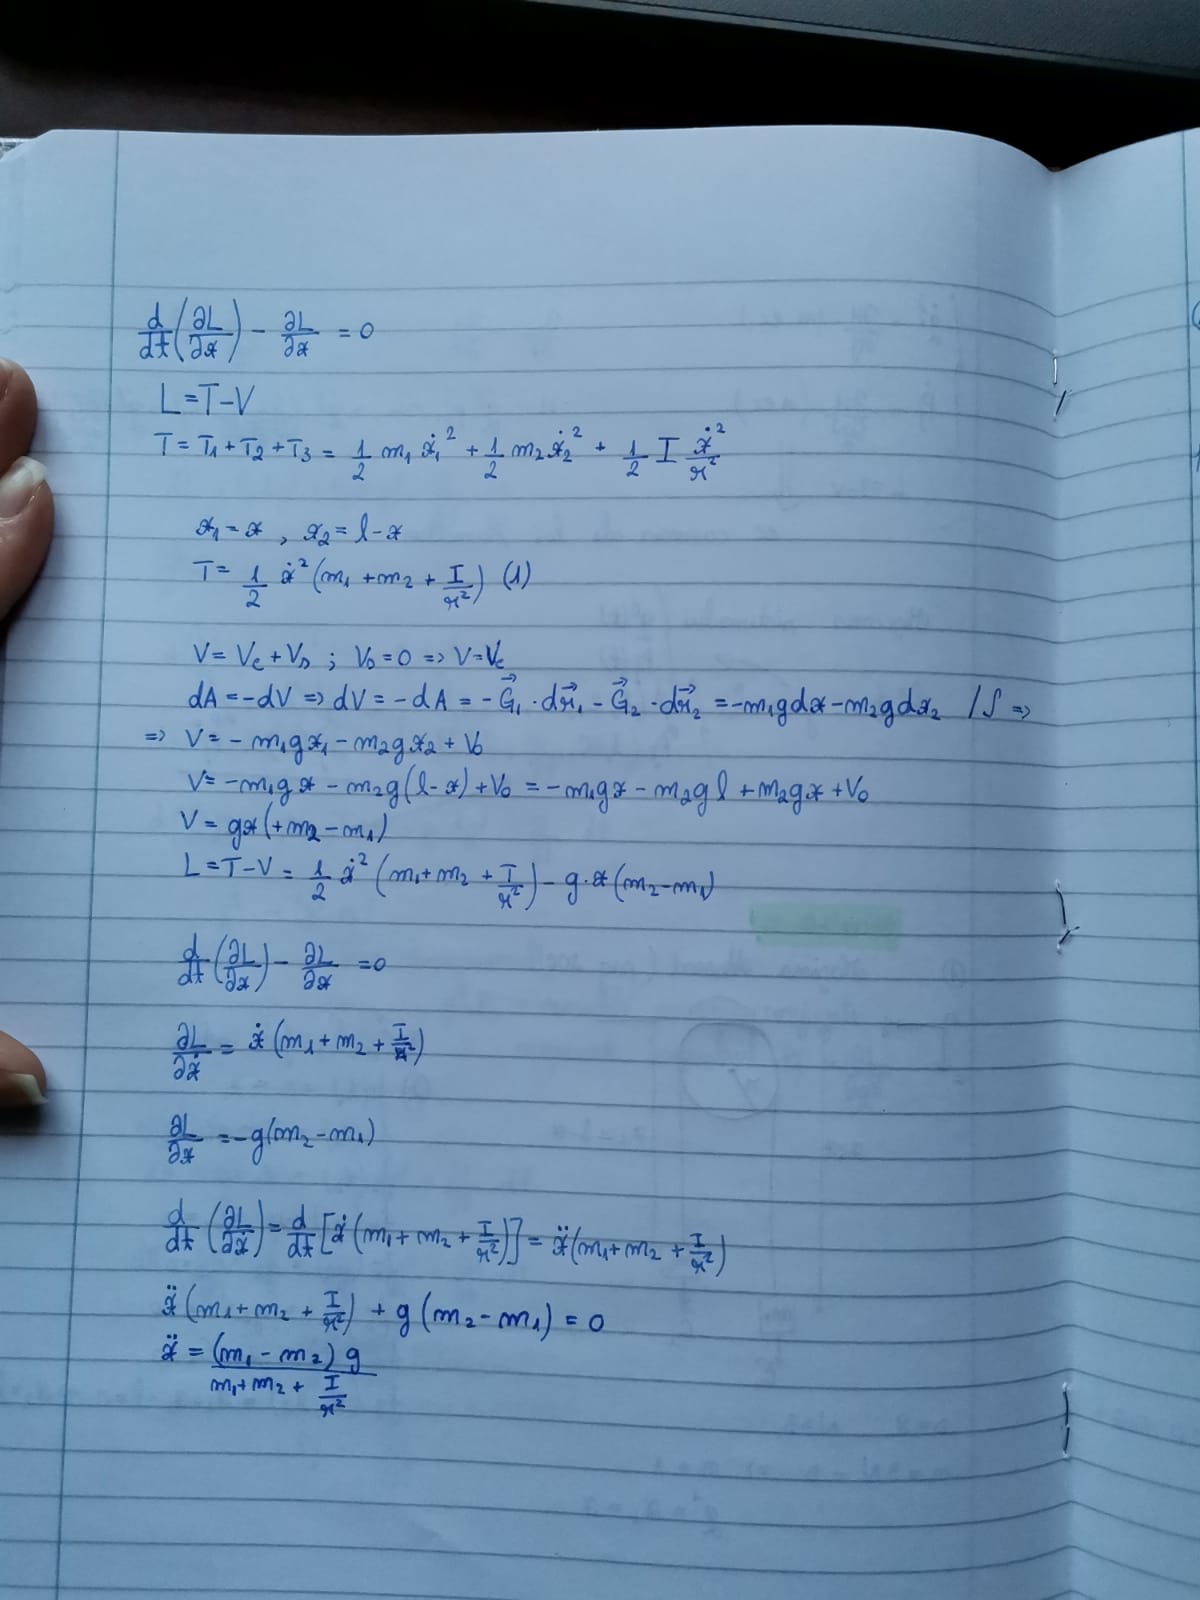 d/dt (∂L/∂x) - ∂L/∂x = 0
L = T - V
T = T₁ + T₂ + T₃ = 1/2 m₁ ẋ₁² + 1/2 m₂ ẋ₂² + 1/2 I ẋ²/r²
x₁ = x , x₂ = l - x
T = 1/2 ẋ² (m₁ + m₂ + I/r²) (1)
V = Vc + Vs ; Vs = 0 => V = Vc
dA = -dV => dV = -dA = -G⃗₁ · dr⃗₁ - G⃗₂ · dr⃗₂ = -m₁gdx - m₂gdx₂ /∫ =>
=> V = -m₁gx₁ - m₂gx₂ + V₀
V = -m₁gx - m₂g(l-x) + V₀ = -m₁gx - m₂gl + m₂gx + V₀
V = gx(+m₂ - m₁)
L = T - V = 1/2 ẋ² (m₁ + m₂ + I/r²) - g·x(m₂ - m₁)
d/dt (∂L/∂ẋ) - ∂L/∂x = 0
∂L/∂ẋ = ẋ (m₁ + m₂ + I/r²)
∂L/∂x = -g(m₂ - m₁)
d/dt (∂L/∂ẋ) = d/dt [ẋ (m₁ + m₂ + I/r²)] = ẍ(m₁ + m₂ + I/r²)
ẍ (m₁ + m₂ + I/r²) + g (m₂ - m₁) = 0
ẍ = (m₁ - m₂) g / m₁ + m₂ + I/r²